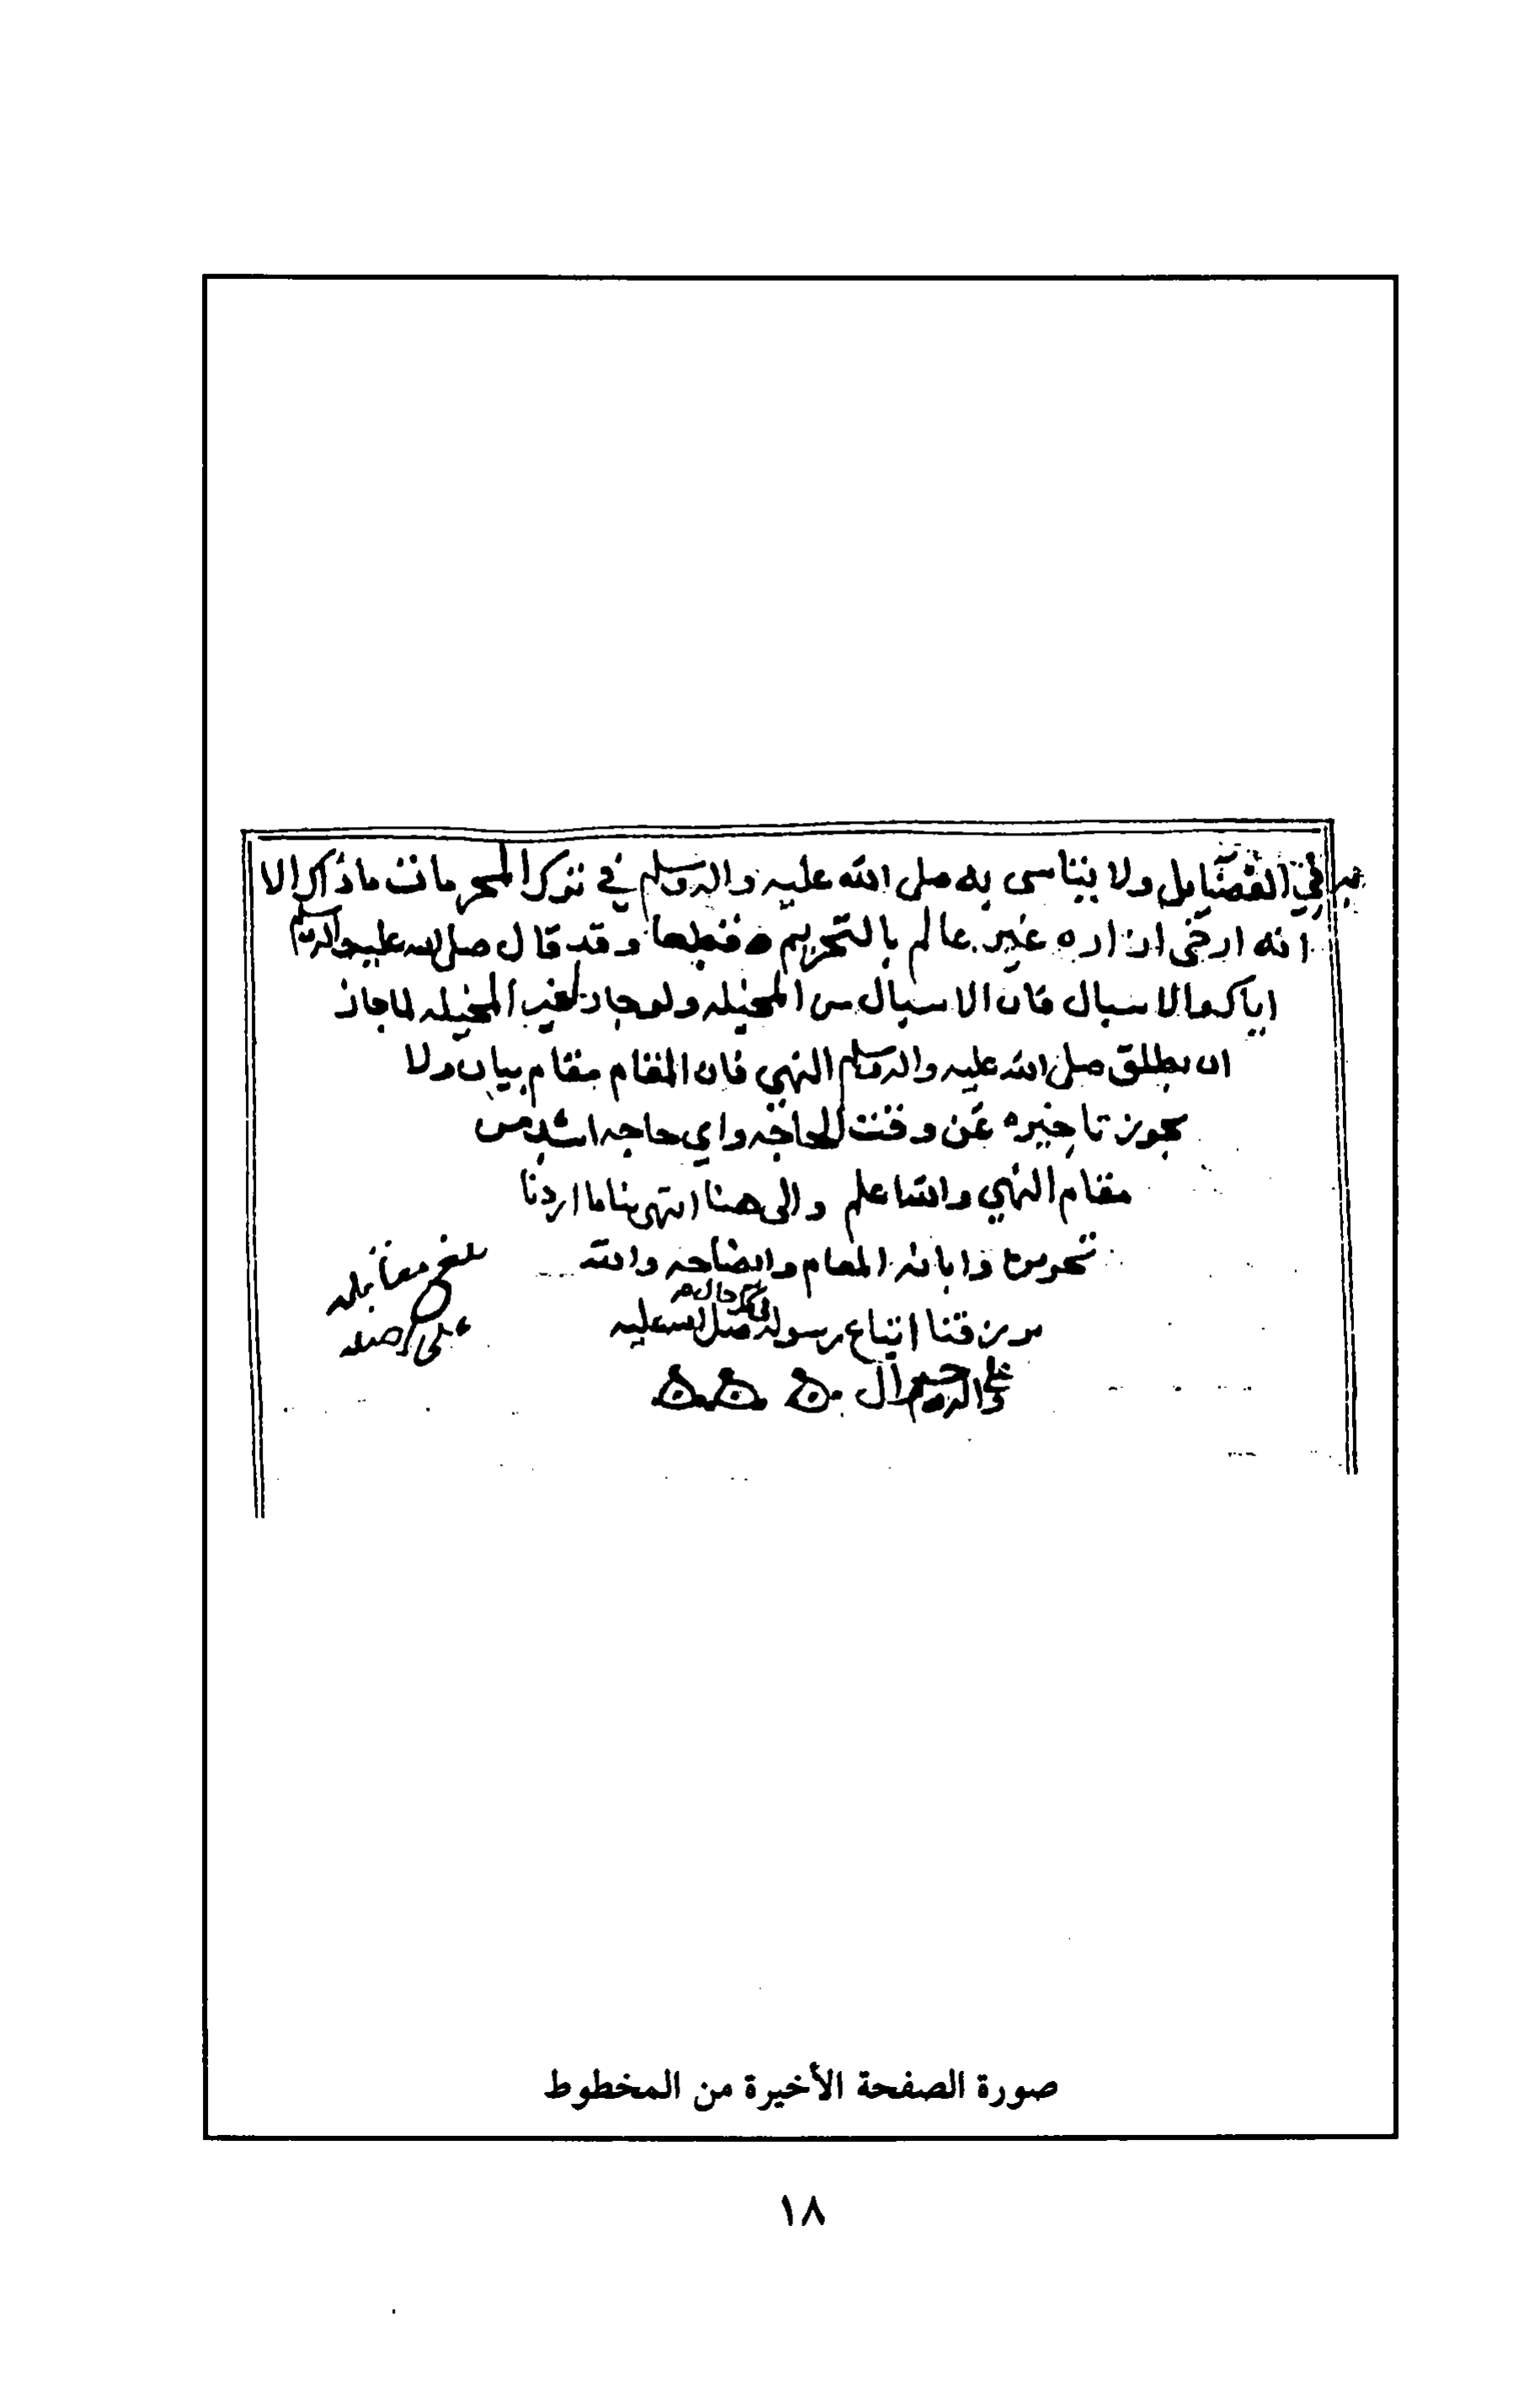 به في الفضايل ولا يتاسى به صلى الله عليه واله وسلم في ترك المحرمات ما ذاك الا
انه ارخى ازاره غير عالم بالتحريم قطعا وقد قال صلى الله عليه واله وسلم
اياك والاسبال فان الاسبال من المخيله ولو جاز لغير المخيله لما جاز
ان يطلق صلى الله عليه واله وسلم النهي فان المقام مقام بيان ولا
يجوز تاخيره عن وقت الحاجه واي حاجه اشد من
مقام النهي والله اعلم والى هنا انتهى بنا ما اردنا
تحريره وابانه المقام وايضاحه والله
يرزقنا اتباع رسوله صلى الله عليه
في كل حال
واله
بلغ مقابله
على اصله
صورة الصفحة الأخيرة من المخطوط
١٨